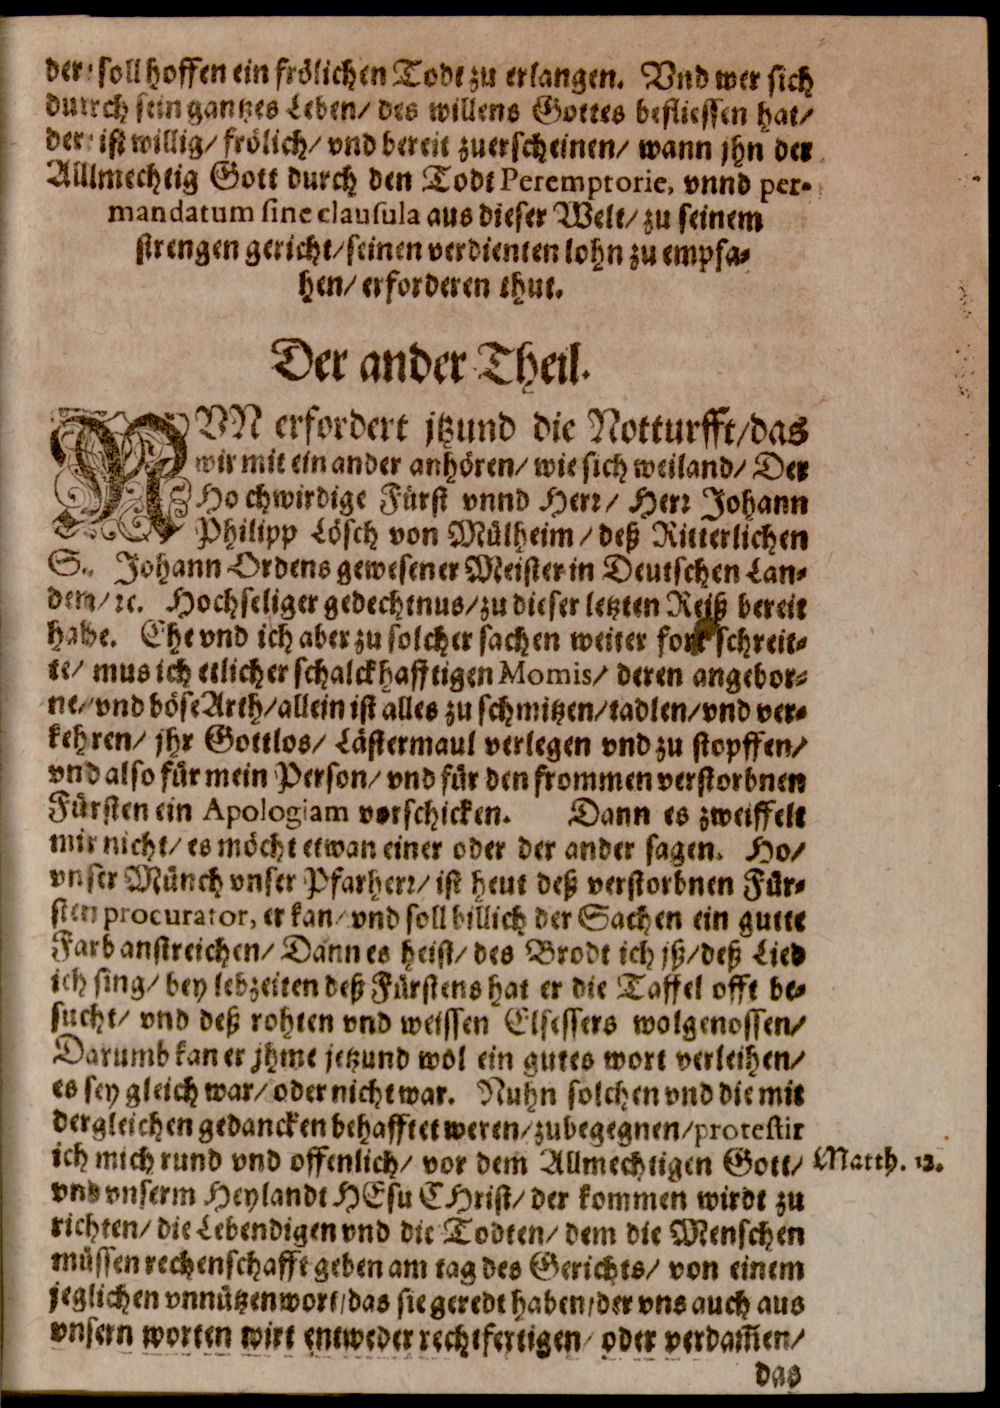 der soll hoffen ein frölichen Todt zu erlangen. Vnd wer sich
durrch sein gantzes Leben/ des willens Gottes befliessen hat/
der ist willig/ frölich/ vnd bereit zuerscheinen/ wann jhn der
Alllmechtig Gott durch den Todt Peremptorie, vnnd per-
mandatum sine clausula aus dieser Welt/ zu seinem
strengen gericht/ seinen verdienten lohn zu empfa-
hen/ erforderen thut.
Der ander Theil.
NVN erfordert jtzund die Notturfft/ das
wir mit ein ander anhören/ wie sich weiland/ Der
Hochwirdige Fürst vnnd Herr/ Herr Johann
Philipp Lösch von Mülheim/ deß Ritterlichen
S. Johann Ordens gewesener Meister in Deutschen Lan-
dem/ ꝛc. Hochseliger gedechtnus/ zu dieser letzten Reiß bereit
habe. Ehe vnd ich aber zu solcher sachen weiter fort schreit-
te/ mus ich etlicher schalckhafftigen Momis/ deren angebor-
ne/ vnd böse Arth/ allein ist alles zu schmitzen/ tadlen/ vnd ver-
kehren/ jhr Gottlos/ Lästermaul verlegen vnd zu stopffen/
vnd also für mein Person/ vnd für den frommen verstorbnen
Fürsten ein Apologiam vorschicken. Dann es zweiffelt
mir nicht/ es möcht etwan einer oder der ander sagen. Ho/
vnser Münch vnser Pfarherr/ ist heut deß verstorbnen Für-
sten procurator, er kan/ vnd soll billich der Sachen ein gutte
Farb anstreichen/ Dann es heist/ des Brodt ich jß/ deß Lied
ich sing/ bey lebzeiten deß Fürstens hat er die Taffel offt be-
sucht/ vnd deß rohten vnd weissen Elsessers wolgenossen/
Darumb kan er jhme jetzund wol ein gutes wort verleihen/
es sey gleich war/ oder nicht war. Nuhn solchen vnd die mit
dergleichen gedancken behafftet weren/ zubegegnen/ protestir
ich mich rund vnd offenlich/ vor dem Allmechtigen Gott/ Matth. 12.
vnd vnserm Heylandt HEsu CHrist/ der kommen wirdt zu
richten/ die Lebendigen vnd die Todten/ dem die Menschen
müssen rechenschafft geben am tag des Gerichts/ von einem
jeglichen vnnützen wort/ das sie geredt haben/ der vns auch aus
vnsern worten wirt entweder rechtfertigen/ oder verdam̃en/
das